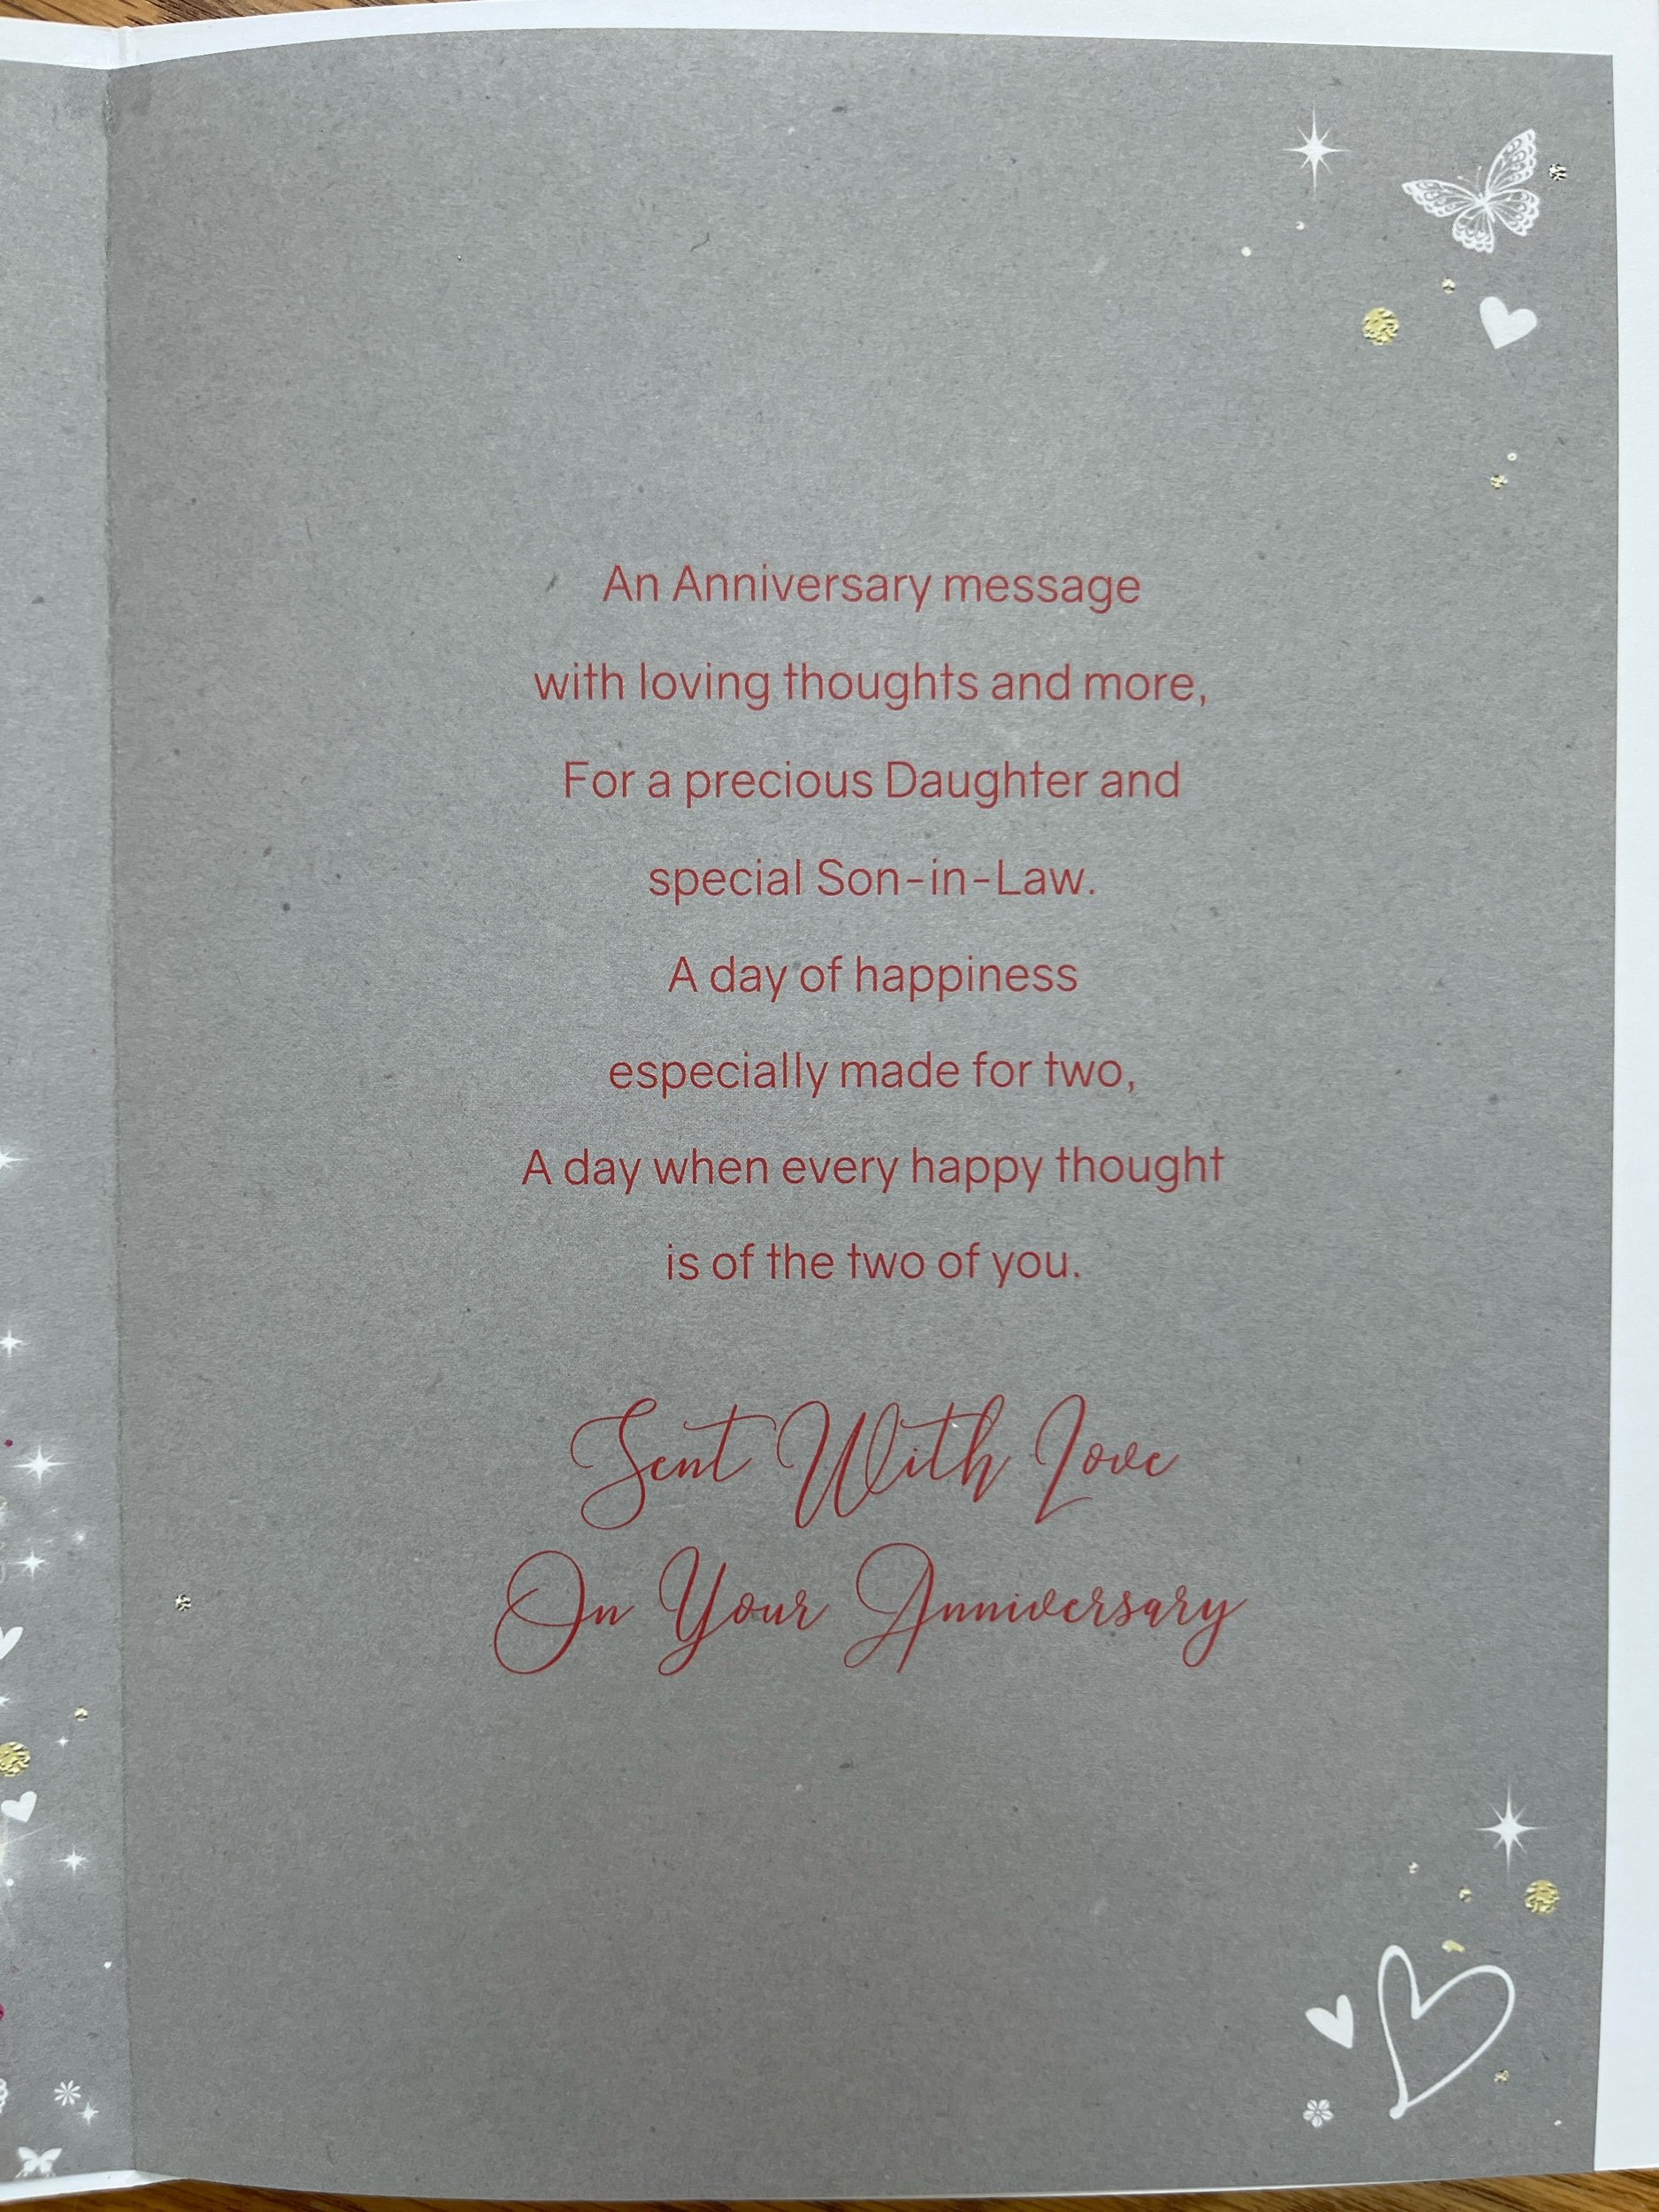 An Anniversary message
with loving thoughts and more,
For a precious Daughter and
special Son-in-Law.
A day of happiness
especially made for two,
A day when every happy thought
is of the two of you.
Sent With Love
On Your Anniversary